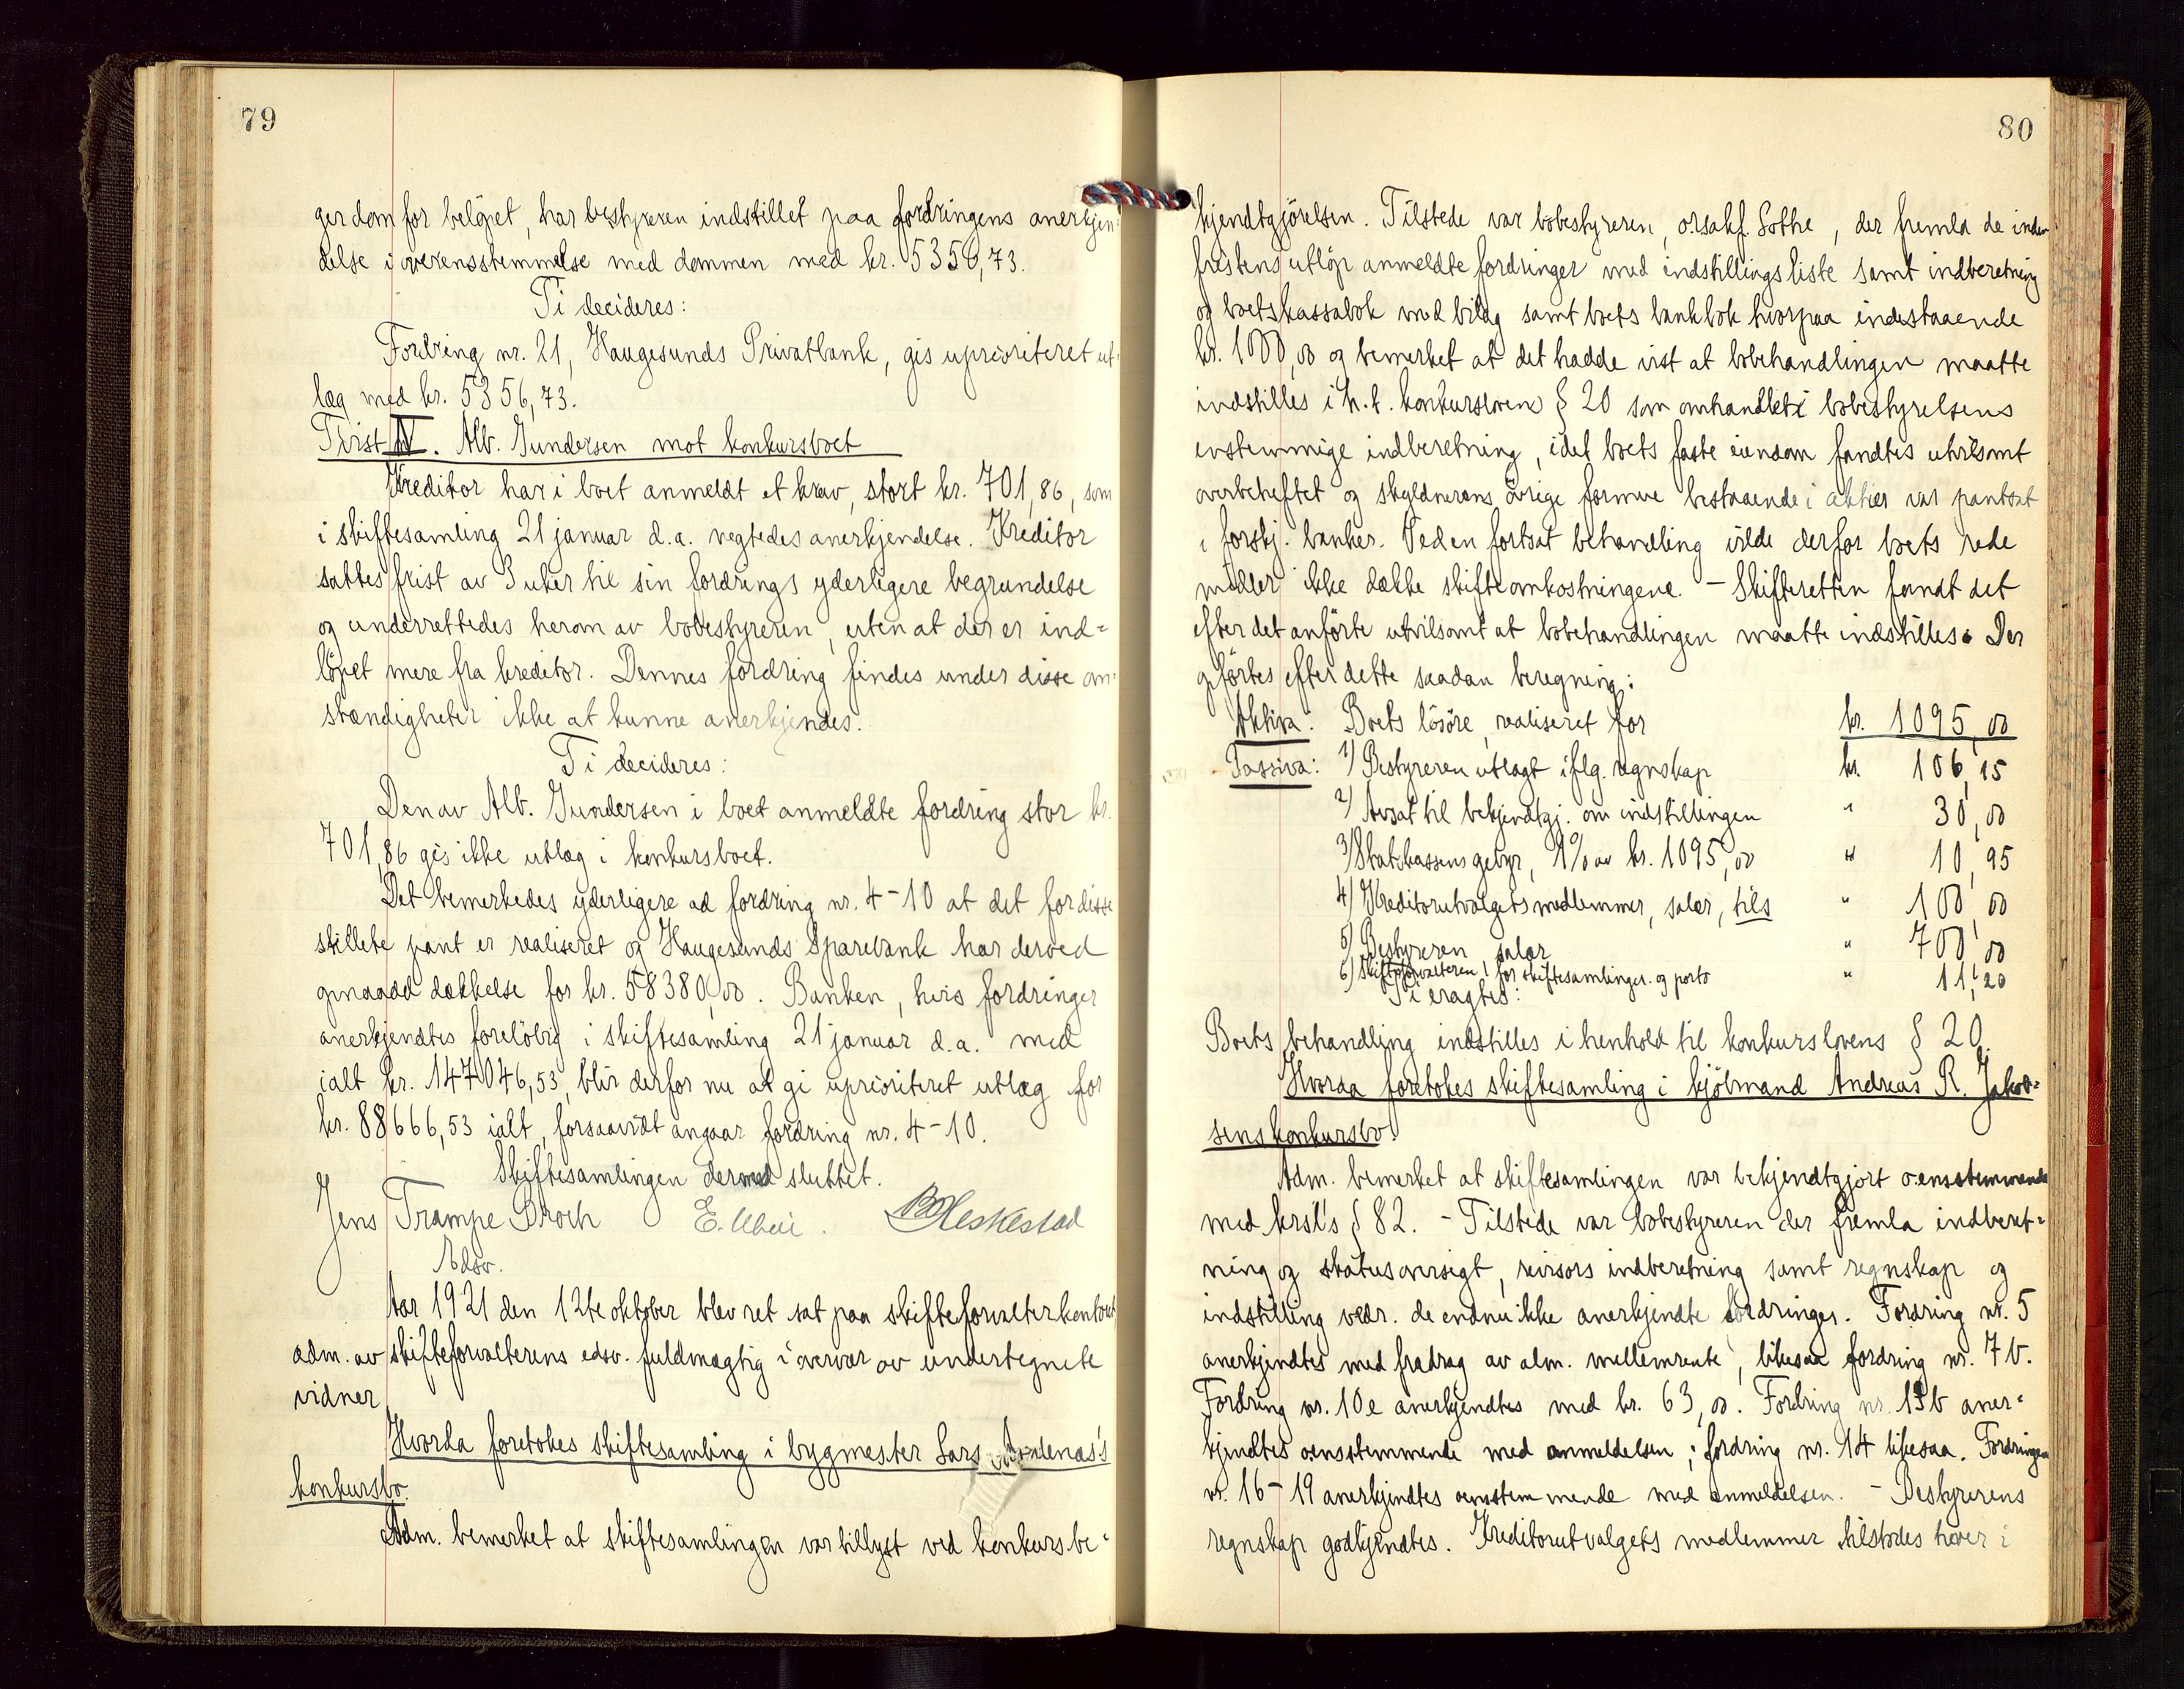 79
ger dom for beløpet, har bestyreren indstillet paa fordringens anerkjen-
delse i overensstemmelse med dommen med kr. 5356,73.
Ti decideres:
Fordring nr. 21, Haugesunds Privatbank, gis uprioriteret ut-
læg med kr. 5356,73.
Tvist IV. Alb. Gundersen mot konkursboet
Kreditor har i boet anmeldt et krav, stort kr. 701,86, som
i skiftesamling 21 januar d.a. negtedes anerkjendelse. Kreditor
sattes frist av 3 uker til sin fordrings yderligere begrundelse
og underrettedes herom av bobestyreren, uten at der er ind-
løpet mere fra kreditor. Dennes fordring findes under disse om-
stændigheter ikke at kunne anerkjendes.
Ti decideres:
Den av Alb. Gundersen i boet anmeldte fordring stor kr.
701,86 gis ikke utlæg i konkursboet.
Det bemerkedes yderligere ad fordring nr. 4-10 at det for disse
stillete pant er realiseret og Haugesunds Sparebank har derved
opnaadd dækkelse for kr. 58380,00. Banken, hvis fordringer
anerkjendtes foreløbig i skiftesamling 21 januar d.a. med
ialt kr. 147046,53, blir derfor nu at gi uprioriteret utlæg for
kr. 88666,53 ialt, forsaavidt angaar fordring nr. 4-10.
Skiftesamlingen dermed sluttet.
Jens Trampe Broch E. B Heskestad
Edsv.
Aar 1921 den 12te oktober blev ret sat paa skifteforvalterkontoret
adm. av skifteforvalterens edsv. fuldmægtig i overvær av undertegnete
vidner
Hvorda foretokes skiftesamling i bygmester Lars
konkursbo.
Adm. bemerket at skiftesamlingen var tillyst ved konkursbe-
80
kjendtgjørelsen. Tilstede var bobestyreren, o.r.sakf. Sothe, der fremla de inden
fristens utløp anmeldte fordringer med indstillingsliste samt indberetning
og boets kassabok med bilag samt boets bankbok hvorpaa indestaaende
kr. 1000,00 og bemerket at det hadde vist at bobehandlingen maatte
indstilles i h.t. konkursloven § 20 som omhandlet i bobestyrelsens
enstemmige indberetning, idet boets faste eiendom fandtes utvilsomt
overbeheftet og skyldnerens øvrige formue bestaaende i aktier var pantsat
i forskj. banker. Ved en fortsat behandling vilde derfor boets rede
midler ikke dække skifteomkostningene. — Skifteretten fandt det
efter det anførte utvilsomt at bobehandlingen maatte indstilles. Der
opførtes efter dette saadan beregning:
Aktiva: Boets løsøre, realiseret for kr. 1095,00
Passiva: 1) Bestyreren utlagt iflg. regnskap kr. 106,15
2) Avsat til bekjendtgj. om indstillingen " 30,00
3) Statskassens gebyr, 1% av kr. 1095,00 " 10,95
4) Kreditorutvalgets medlemmer, salær, tils " 100,00
5) Bestyreren salær " 700,00
6) Skifteforvalteren, for skiftesamlinger og porto " 11,20
Ti eragtes:
Boets behandling indstilles i henhold til konkurslovens § 20.
Hvorda foretokes skiftesamling i kjøbmand Andreas R. Jakob-
sens konkursbo.
Adm. bemerket at skiftesamlingen var bekjendtgjort o.ensstemmende
med krsl's § 82. - Tilstede var bobestyreren der fremla indberet-
ning og statusoversigt, revisors indberetning samt regnskap og
indstilling vedr. de endnu ikke anerkjendte fordringer. Fordring nr. 5
anerkjendtes med fradrag av alm. mellemrente, likesaa fordring nr. 7 b.
Fordring nr. 10e anerkjendtes med kr. 63,00. Fordring nr. 13b aner-
kjendtes oensstemmende med anmeldelsen; fordring nr. 14 likesaa. Fordringen
nr. 16-19 anerkjendtes oensstemmende med anmeldelsen. - Bestyrerens
regnskap godkjendtes. Kreditorutvalgets medlemmer tilstodes hver i